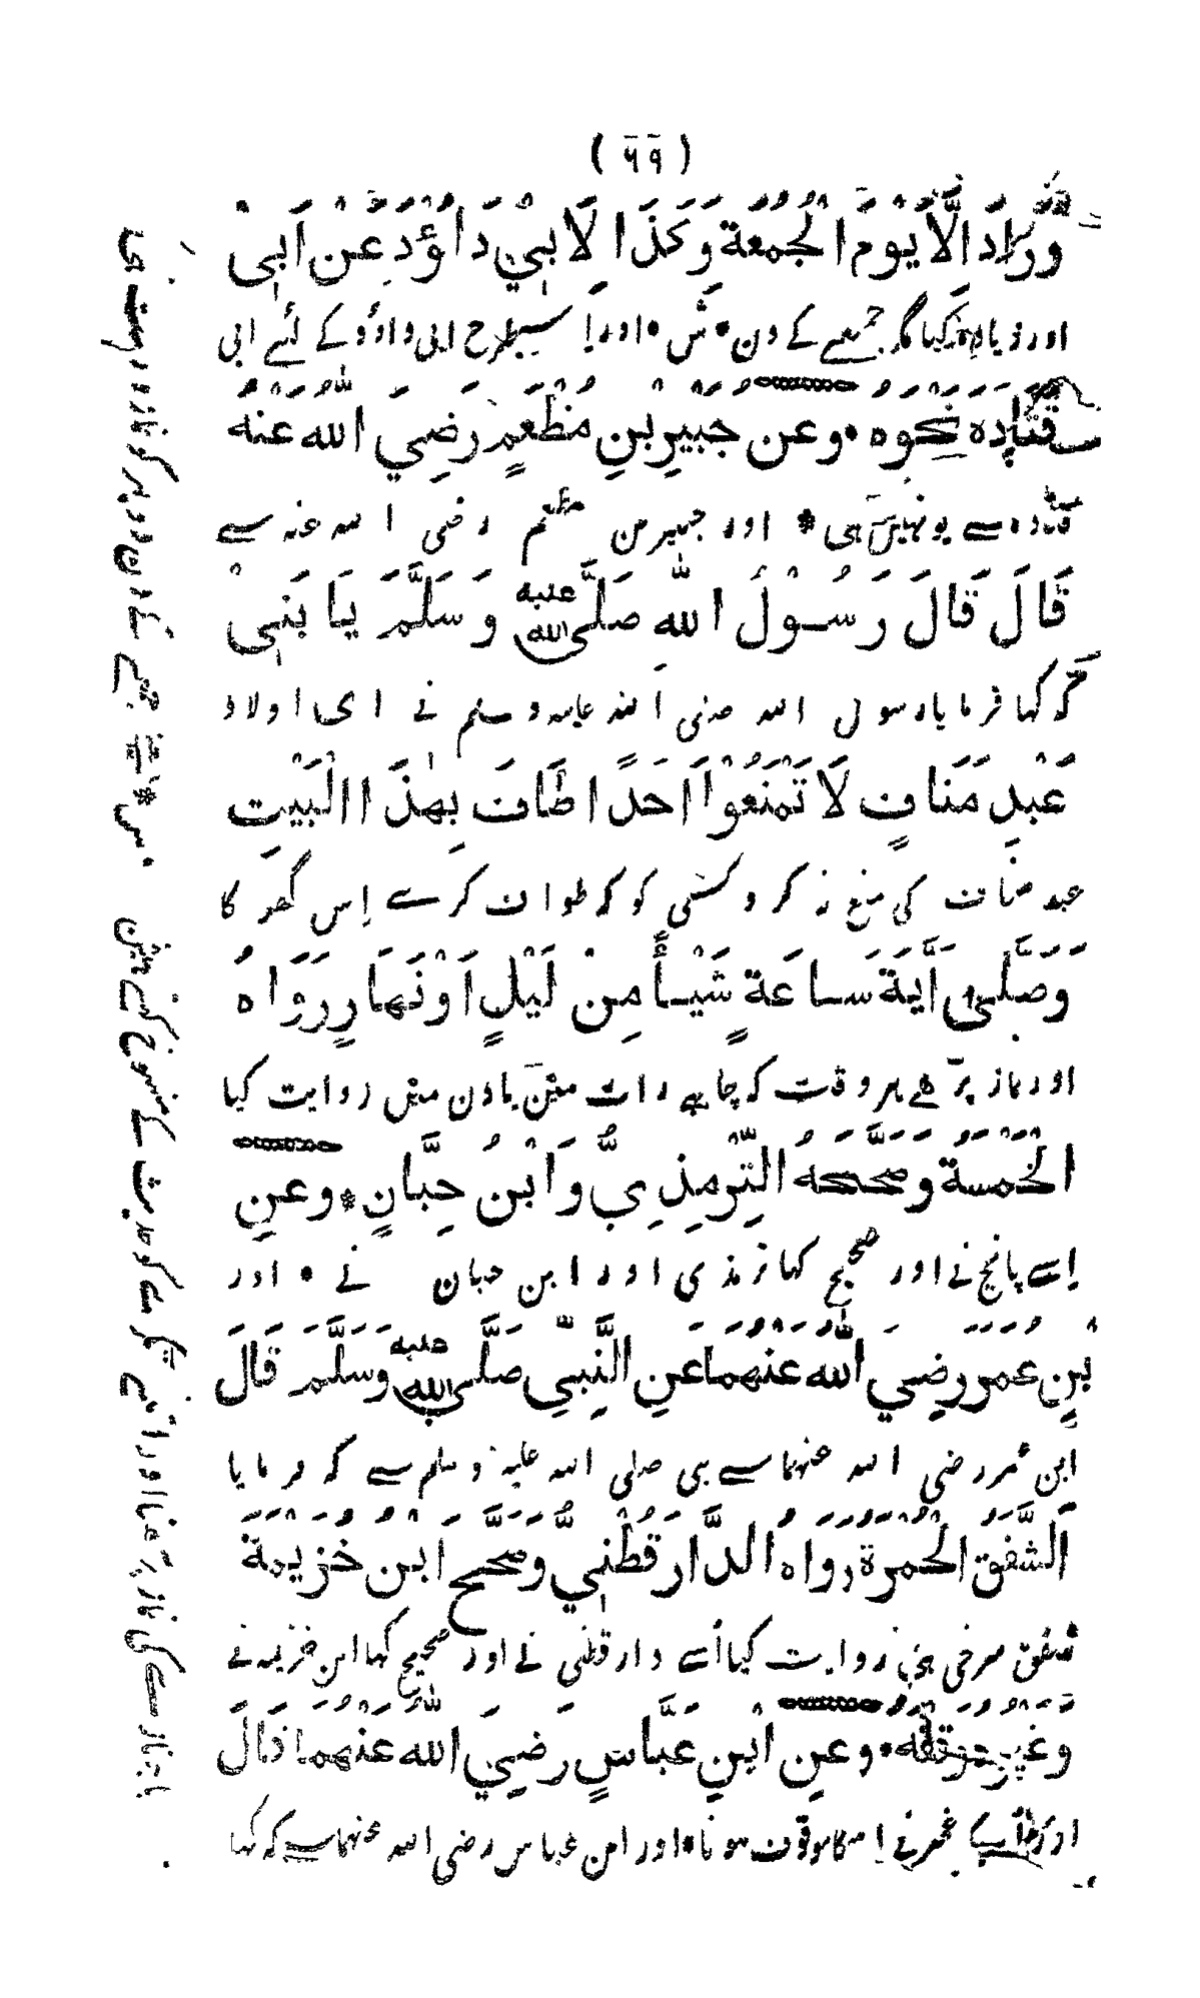 ( ٦٩ )
وَزَادَ اِلَّا يَوْمَ الْجُمُعَةِ وَكَذَا لِاَبِيْ دَاوُدَ عَنْ اَبِىْ
اور زیادہ کیا مگر جمعے کے دن * ش * اور اسیطرح ابی داؤد کے لئے ابی
قَتَادَةَ نَحْوُهٗ * وعن جُبَيْرِ بْنِ مُطْعِمٍ رَضِيَ اللّٰهُ عَنْهُ
قتادہ سے یونہیں ہی * اور جبیر بن مطعم رضی اللہ عنہ سے
قَالَ قَالَ رَسُوْلُ اللّٰهِ صَلَّى اللّٰه عليه وَسَلَّمَ يَا بَنِىْ
کہ کہا فرمایا رسول اللہ صلی اللہ علیہ و سلم نے ای اولاد
عَبْدِ مَنَافٍ لَا تَمْنَعُوْا اَحَدًا طَافَ بِهٰذَا الْبَيْتِ
عبد مناف کی منع نہ کرو کسی کو کہ طواف کرے اِس گھر کا
وَصَلّٰى اَيَّةَ سَاعَةٍ شَيْـأً مِنْ لَيْلٍ اَوْ نَهَارٍ رَوَاهُ
اور نماز پڑھے ہر وقت کہ چاہے رات میں یا دن میں روایت کیا
الْخَمْسَةُ وَصَحَّحَهُ التِّرْمِذِيُّ وَابْنُ حِبَّانٍ * وعنِ
اِسے پانچ نے اور صحیح کہا ترمذی اور ابن حبان نے * اور
بْنِ عُمَرَ رَضِيَ اللّٰهُ عَنْهُمَا عَنِ النَّبِيِّ صَلَّى اللّٰه عليه وَسَلَّمَ قَالَ
ابن عمر رضی اللہ عنہما سے نبی صلی اللہ علیہ و سلم سے کہ فرمایا
اَلشَّفَقُ الْحُمْرَةُ رَوَاهُ الدَّارَقُطْنِيُّ وَصَحَّحَ ابْنُ خُزَيْمَةَ
شفق سرخی ہی روایت کیا اُسے دارقطنی نے اور صحیح کہا ابن خزیمہ نے
وَغَيْرُهُ وَقْفَهٗ * وعنِ ابْنِ عَبَّاسٍ رَضِيَ اللّٰهُ عَنْهُمَا قَالَ
اور اُسکے غیر نے اسکا موقوف ہونا * اور ابن عباس رضی اللہ عنہما سے کہ کہا
جمعے کے دن دوپہر کو نماز درست